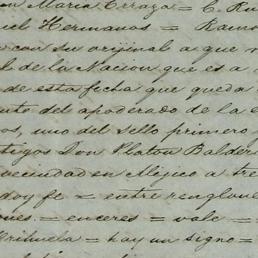 on Maria Erraza = E. Ru
iel Hermanos = Ramo
con su original a que
l de la Nacion que es a
de esta fecha que queda
nto del apoderado de la
os, uno del sello primero
tigos Don Platon Balder
vecindad en Mejico a tre
doy fe = entre renglone
ones. = enceres = vale =
Orihuela = hay un signo =